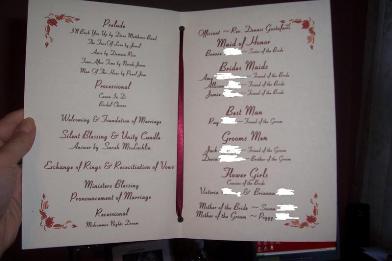 Prelude
I'll Back You Up by Dave Matthews Band
The First Of Love by Jewel
Amie by Damien Rice
Time After Time by Norah Jones
Man Of The Hour by Pearl Jam
Processional
Canon In D
Bridal Chorus
Welcoming & Foundation of Marriage
Silent Blessing & Unity Candle
Answer by Sarah McLachlin
Exchange of Rings & Recicitation of Vows
Ministers Blessing
Pronouncement of Marriage
Recessional
Midsummer Nights Dream
Officient ~ Rev. Dennis
Maid of Honor
of the Bride
Brides Maids
Friend of the Bride
Friend of the Bride
Friend of the Bride
Best Man
Friend of the Groom
Grooms Men
Friend of the Groom
Brother of the Groom
Flower Girls
Cousins of the Bride
Victoria & Brianna
Mother of the Bride ~ Susan
Mother of the Groom ~ Peggy